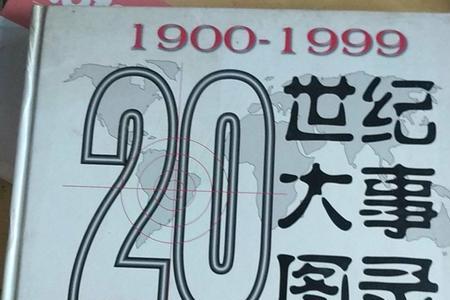 1900-1999
20世纪
大事
图录